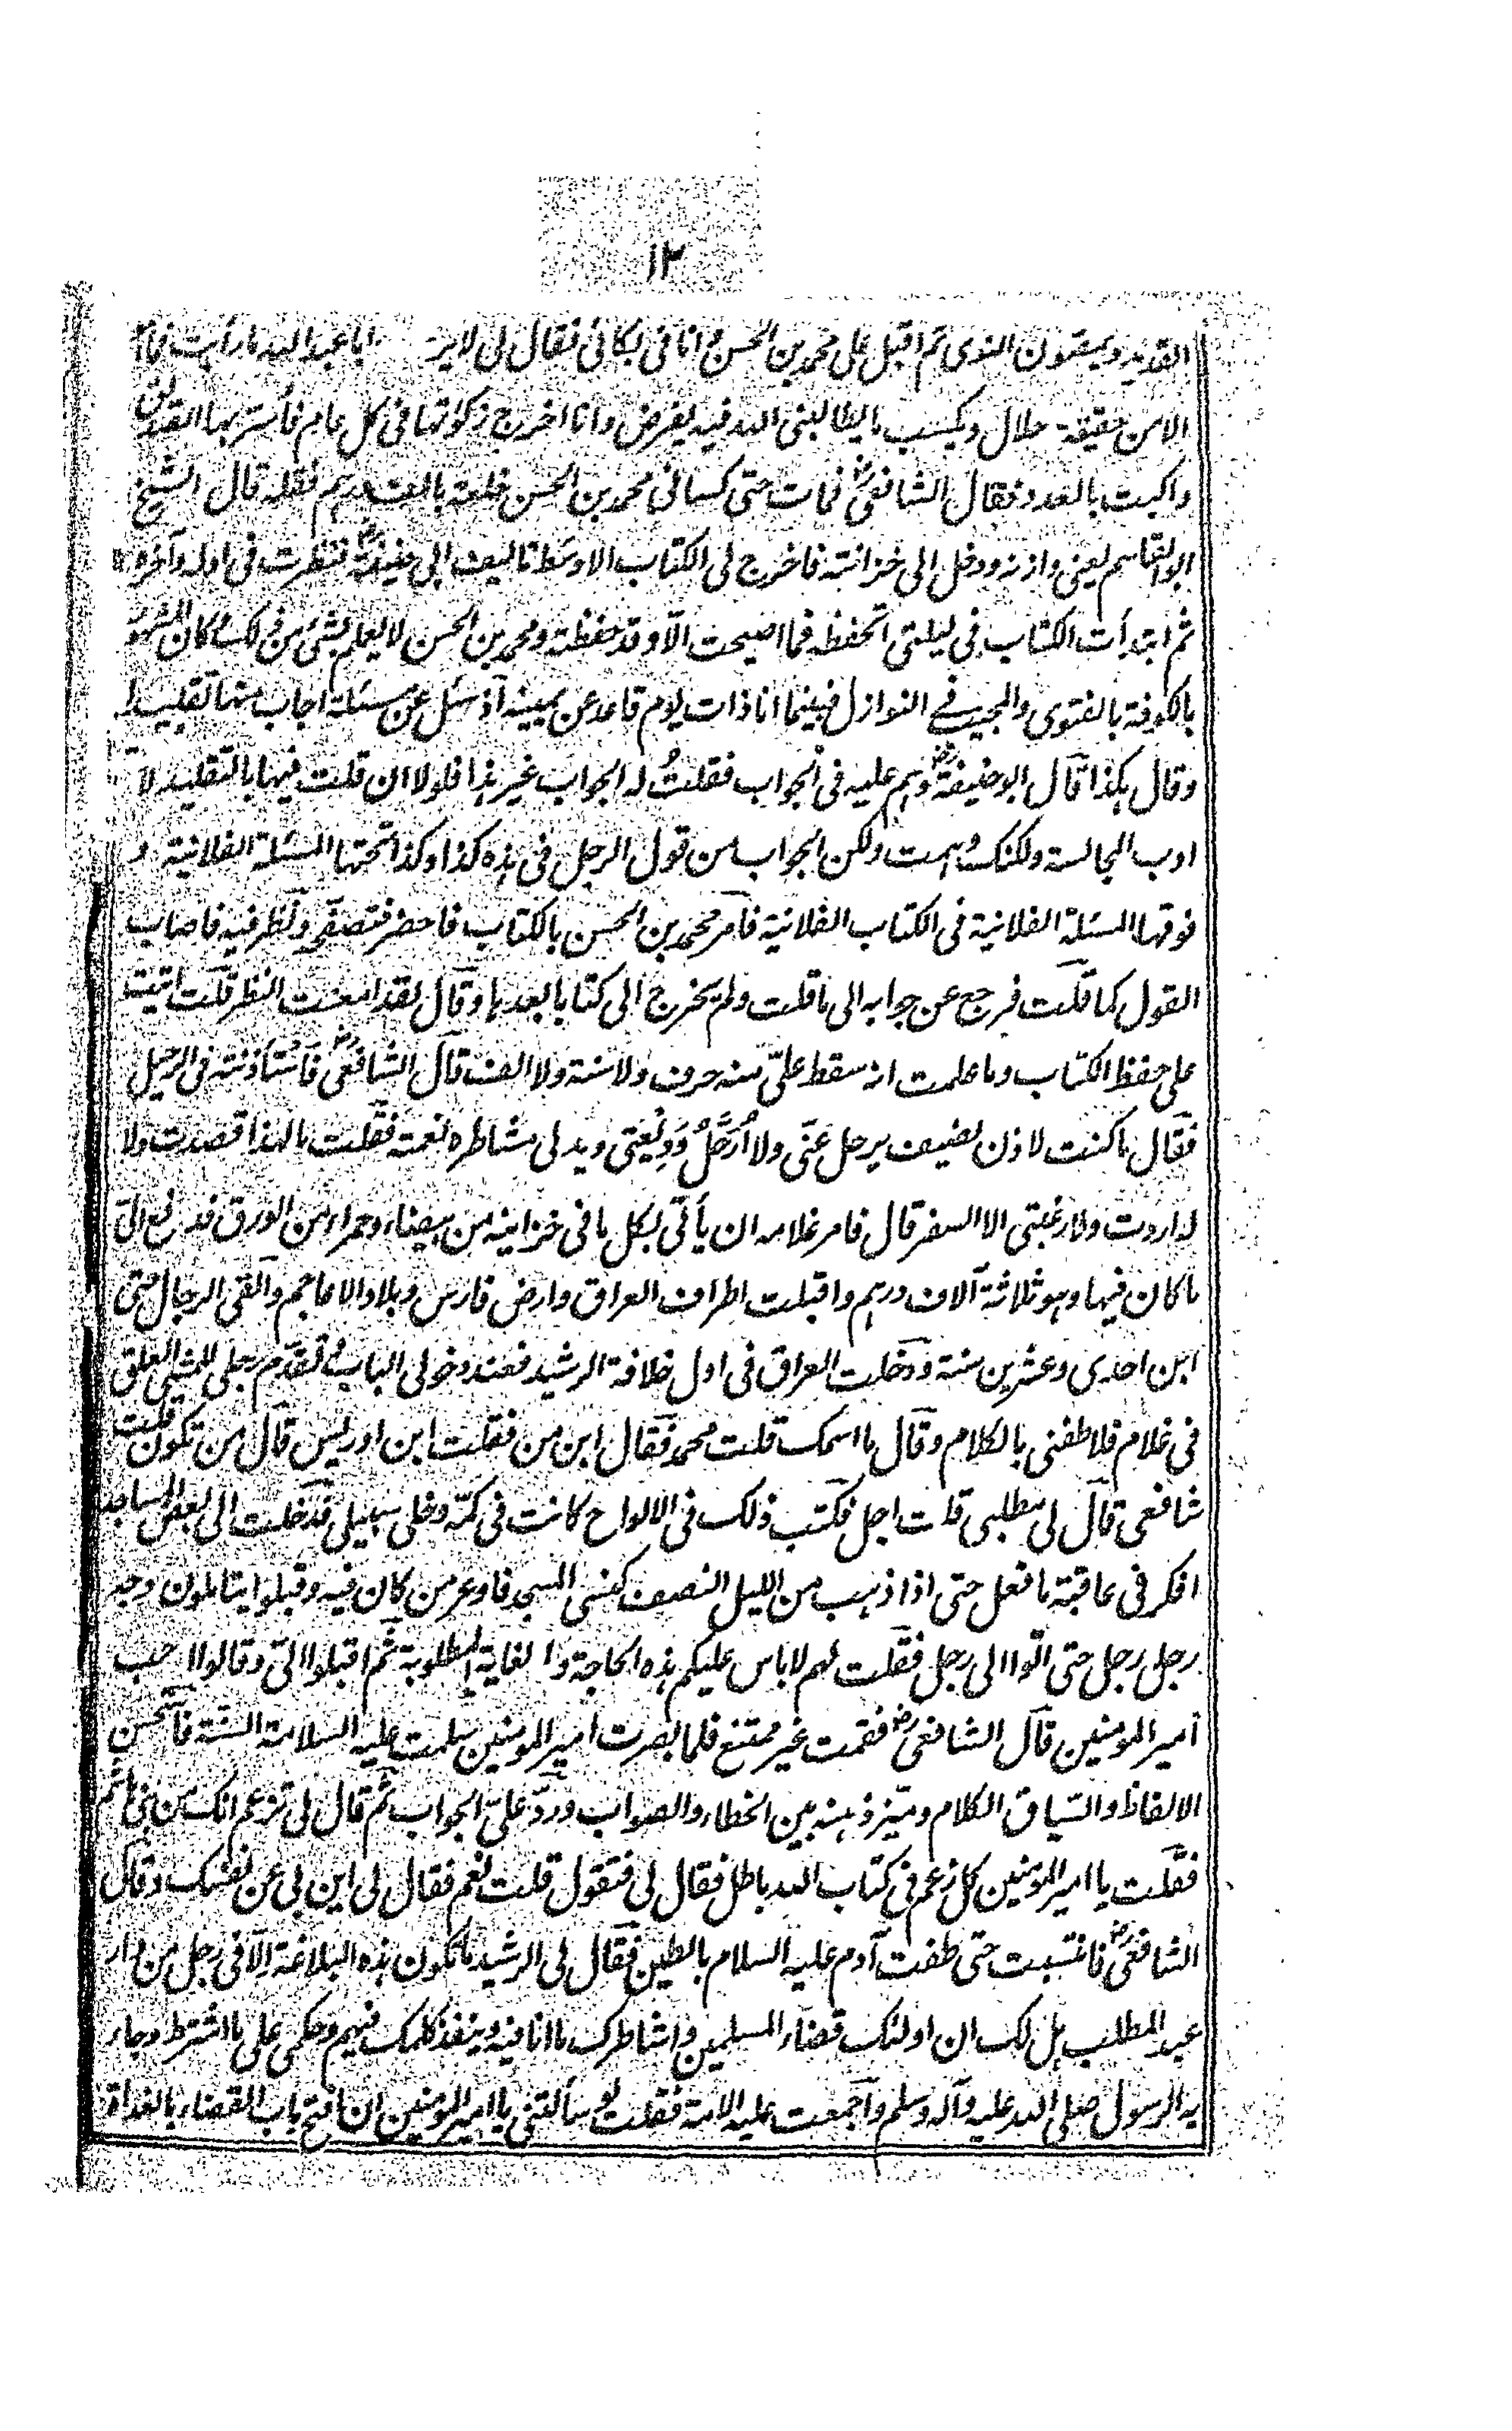 ١٣
القديد ويمصون النوى ثم اقبل على محمد بن الحسن وانا فى بكائى فقال لى لا ابا عبد الله ما رأيت فما
الا من حقيقة حلال ويكسب ما يطالبنى الله فيه بفرض وانا اخرج زكوتها فى كل عام فأسر بها الصديق
واكبت بها العدو فقال الشافعىؓ فمات حتى كسانى محمد بن الحسن خلعة بالف درهم فقله قال الشيخ
ابو القاسم يعنى وازنه ودخل الى خزانته فاخرج لى الكتاب الاوسط تاليف ابى حنيفةؓ فنظرت فى اوله وآخره
ثم ابتدأت الكتاب فى ليلتى اتحفظه فما اصبحت الّا وقد حفظته ومحمد بن الحسن لا يعلم بشئ من ذلك وكان المشهور
بالكوفة بالفتوى والمجيب فے النوازل فبينما انا ذات يوم قاعد عن يمينه اذ سئل عن مسئلة اجاب منها
وقال هكذا قال ابو حنيفةؓ وهم عليه فى الجواب فقلتُ له الجواب غير هذا فلولا ان قلت فيها بالتقليد لا
ادب المجالسة ولكنك وهمت ولكن الجواب من قول الرجل فى هذه كذا وكذا تحتها المسئلة الفلانية و
فوقها المسئلة الفلانية فى الكتاب الفلانية فامر محمد بن الحسن بالكتاب فاحضر فتصفح ونظر فيه فاصاب
القول كما قلت فرجع عن جوابه الى ما قلت ولم يخرج الى كتابا بعدها وقال لقد امعنت النظر قلت اتيت
على حفظ الكتاب وما علمت انه سقط علىّ منه حرف ولا سنة ولا الف قال الشافعىؓ فاستأذنته فى الرحيل
فقال ما كنت لاذن لضيف يرحل عنّى ولا اُرَحّلُ وبذل لى مشاطره نعمة فقلت ما لهذا قصدت ولا
له اردت ولا رغبتى الا السفر قال فامر غلامه ان يأتى بكل ما فى خزاينه من بيضاء وحمراء من الورق فدفع الىّ
ما كان فيها وهو ثلاثة آلاف درهم واقبلت اطراف العراق وارض فارس وبلاد الاعاجم والقى الرجال حتى
ابن احدى وعشرين سنة ودخلت العراق فى اول خلافة الرشيد فعند دخولى الباب تقدم رجلى للمشى العلق
فى غلام فلاطفنى بالكلام وقال ما اسمك قلت محمد فقال ابن من فقلت ابن ادريس قال من تكون قلت
شافعى قال لى مطلبى قلت اجل فكتب ذلك فى الالواح كانت فى كمّه وخلى سبيلى فدخلت الى بعض المساجد
افكر فى عاقبة ما فعل حتى اذا ذهب من الليل النصف كنسى المسجد فاوعر من كان فيه وقبلوا يتاملون وجه
رجل رجل حتى اتوا الى رجل فقلت لهم لا باس عليكم هذه الحاجة والغاية المطلوبة ثم اقبلوا الىّ وقالوا اجب
امير المومنين قال الشافعىؓ فقمت غير ممتنع فلما بصرت امير المومنين سلمت عليه السلامة السنة فأستحسن
الالفاظ والسياق الكلام وميّز ذهنه بين الخطاء والصواب وردّ علىّ الجواب ثم قال لى تزعم انك من بنى هاشم
فقلت يا امير المؤمنين كل زعم فى كتاب الله باطل فقال لى فتقول قلت نعم فقال لى ابن لى عن نفسك وقال
الشافعىؓ فانتسبت حتى طفت آدم عليه السلام بالطين فقال لى الرشيد ما تكون هذه البلاغة الّا فى رجل من دار
عبد المطلب هل لك ان اولّك قضاء المسلمين واشاطرك ما انا فيه وينفذ كلمك فيهم وحكمى على ما اشترط وجاء
به الرسول صلى الله عليه وآله وسلم واجمعت عليه الامة فقلت لو سألتنى يا امير المؤمنين ان افتح باب القضاء بالغداة